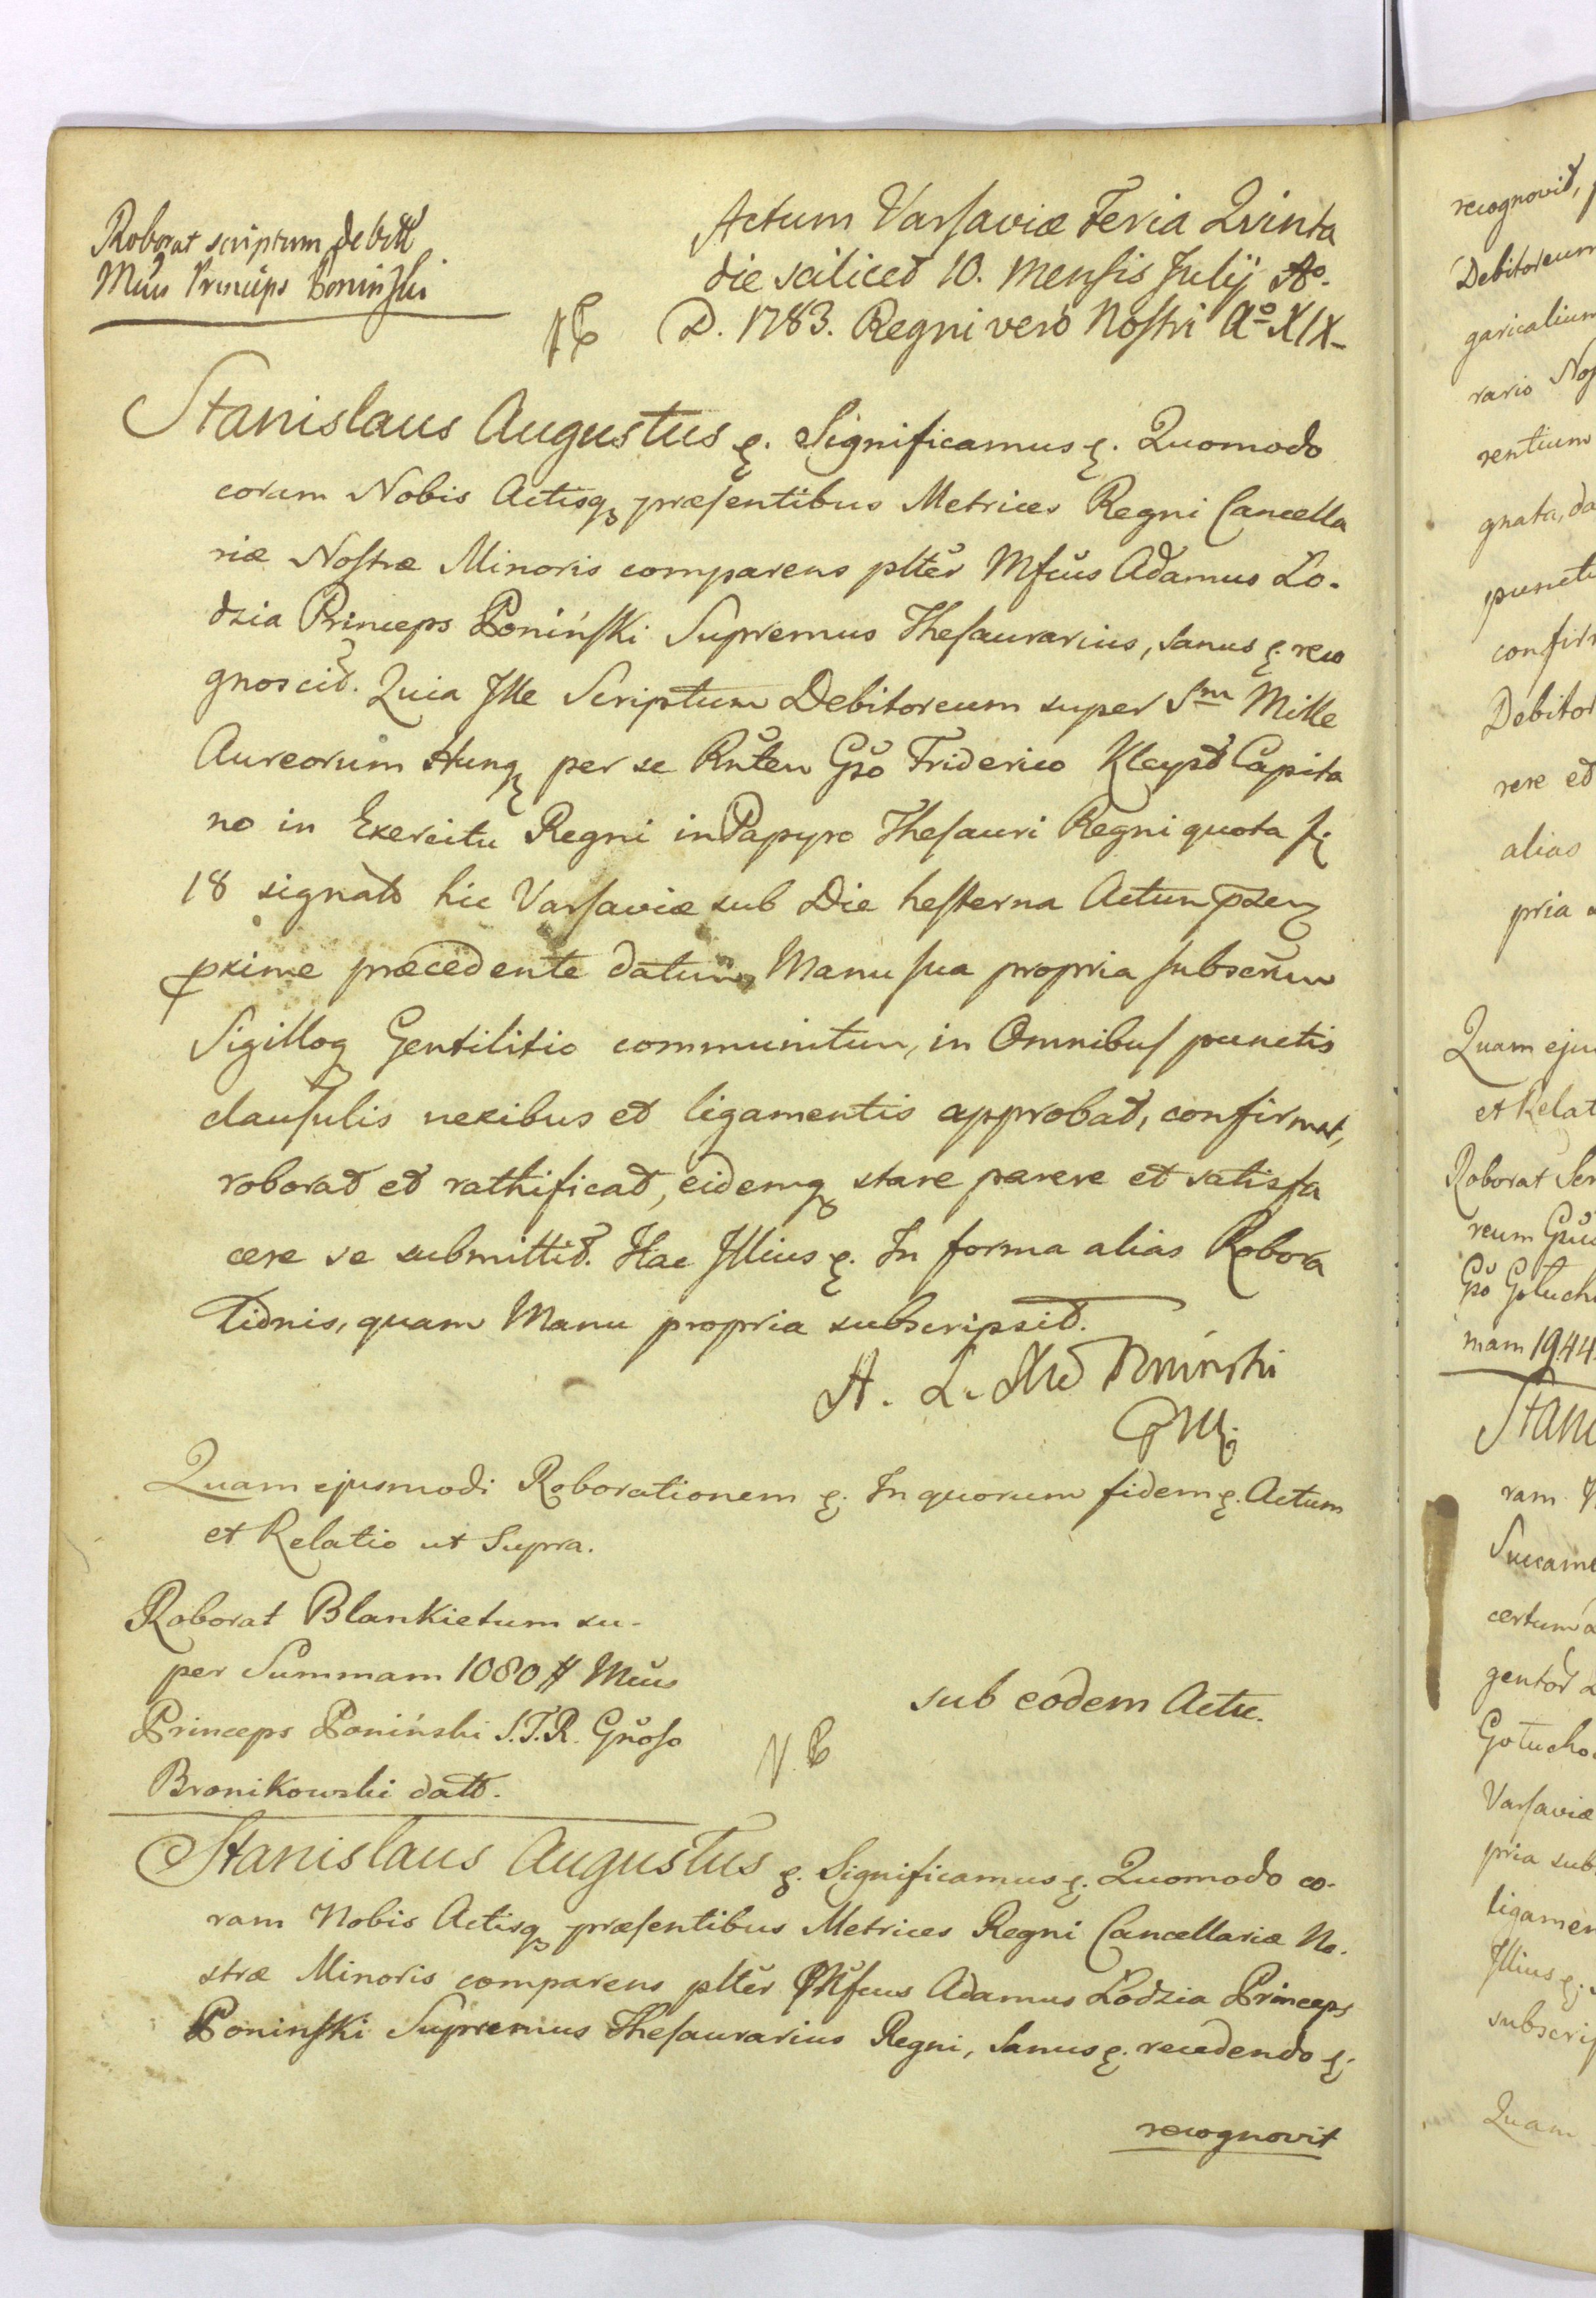 Roborat scriptum Debitt
Mcus Princeps Poninski
Actum Varsaviæ Feria Quinta
die scilicet 10. Mensis Julij Ao.
D. 1783. Regni vero Nostri Ao XIX
Stanislaus Augustus &. Significamus &. Quomodo
coram Nobis Actisq præsentibus Metrices Regni Cancella
riæ Nostræ Minoris comparens plter Mfcus Adamus Lo-
dzia Princeps Poniński Supremus Thesaurarius, sanus &. reco
gnoscit. Quia Ille Scriptum Debitoreum super Sm Mille
Aureorum Hung per se Rnten Gso Friderico Kleyst Capita
no in Exercitu Regni in Papyro Thesauri Regni quota
18 signato hic Varsaviæ sub Die hesterna Actum
pxime præcedente datum, Manu sua propria subscrum
Sigilloq Gentilitio communitum, in Omnibus punctis
clausulis nexibus et ligamentis approbat, confirmat,
roborat et rathificat, eidemq stare parere et satisfa
cere se submittit. Hac Illius &. In forma alias Robora
tionis, quam Manu propria subscripsit.
A. L. Poninski
Quam ejusmodi Roborationem &. In quorum fidem &. Actum
et Relatio ut Supra.
Roborat Blankietum su-
per Summam 1080 # Mcus
Princeps Poniński S.T.R. Gnoso
Bronikowski datt.
sub eodem Actu.
Stanislaus Augustus &. Significamus &. Quomodo co-
ram Nobis Actisq præsentibus Metrices Regni Cancellariæ No-
stræ Minoris comparens plter Mfcus Adamus Lodzia Princeps
Poninski Supremus Thesaurarius Regni, Sanus &. recedendo &.
recognovit
recognovit,
Debitoreum
garicalium
rario
rentium
gnata,
Debitor
rere et
alias
pria
Quam
et Relat
Roborat
reum
mam 1944.
ram
certum
Varsaviæ
pria
Illius &.
Quam